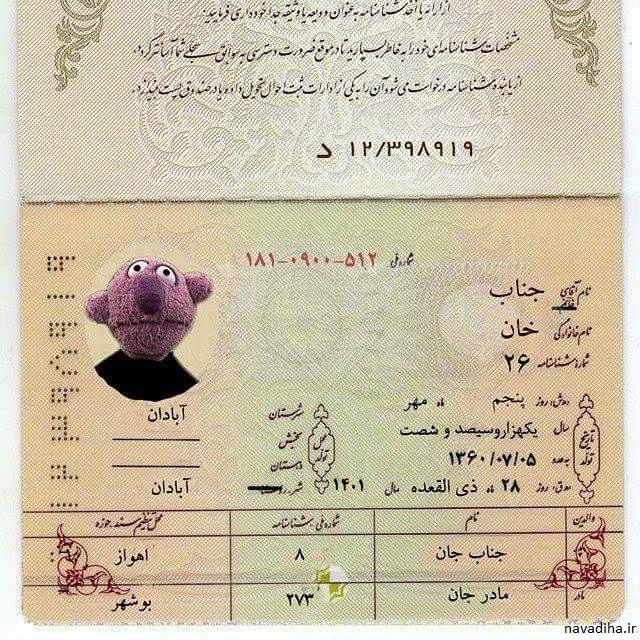 از ارائه یا اخذ شناسنامه به عنوان ودیعه یا وثیقه جداً خودداری فرمایید.
مشخصات شناسنامه‌ای خود را به خاطر بسپارید تا در موقع ضرورت دسترسی به سوابق سجلی شما آسانتر گردد.
از یابنده شناسنامه درخواست می‌شود آن را به یکی از ادارات ثبت احوال تحویل داده یا در صندوق پست بیندازد.
د ۱۲/۳۹۸۹۱۹
شماره ملی ۵۱۲-۰۹۰۰-۱۸۱
نام آقای جناب
خانم
نام خانوادگی خان
شماره شناسنامه ۲۶
تاریخ تولد
روز پنجم ماه مهر
سال یکهزاروسیصد و شصت
۱۳۶۰/۰۷/۰۵
روز ۲۸ ماه ذی القعده سال ۱۴۰۱
محل تولد
شهرستان آبادان
بخش
دهستان
شهر آبادان
والدین نام شماره ملی/شناسنامه محل تنظیم سند/حوزه
جناب جان ۸ اهواز
مادر مادر جان ۲۷۳ بوشهر
navadiha.ir